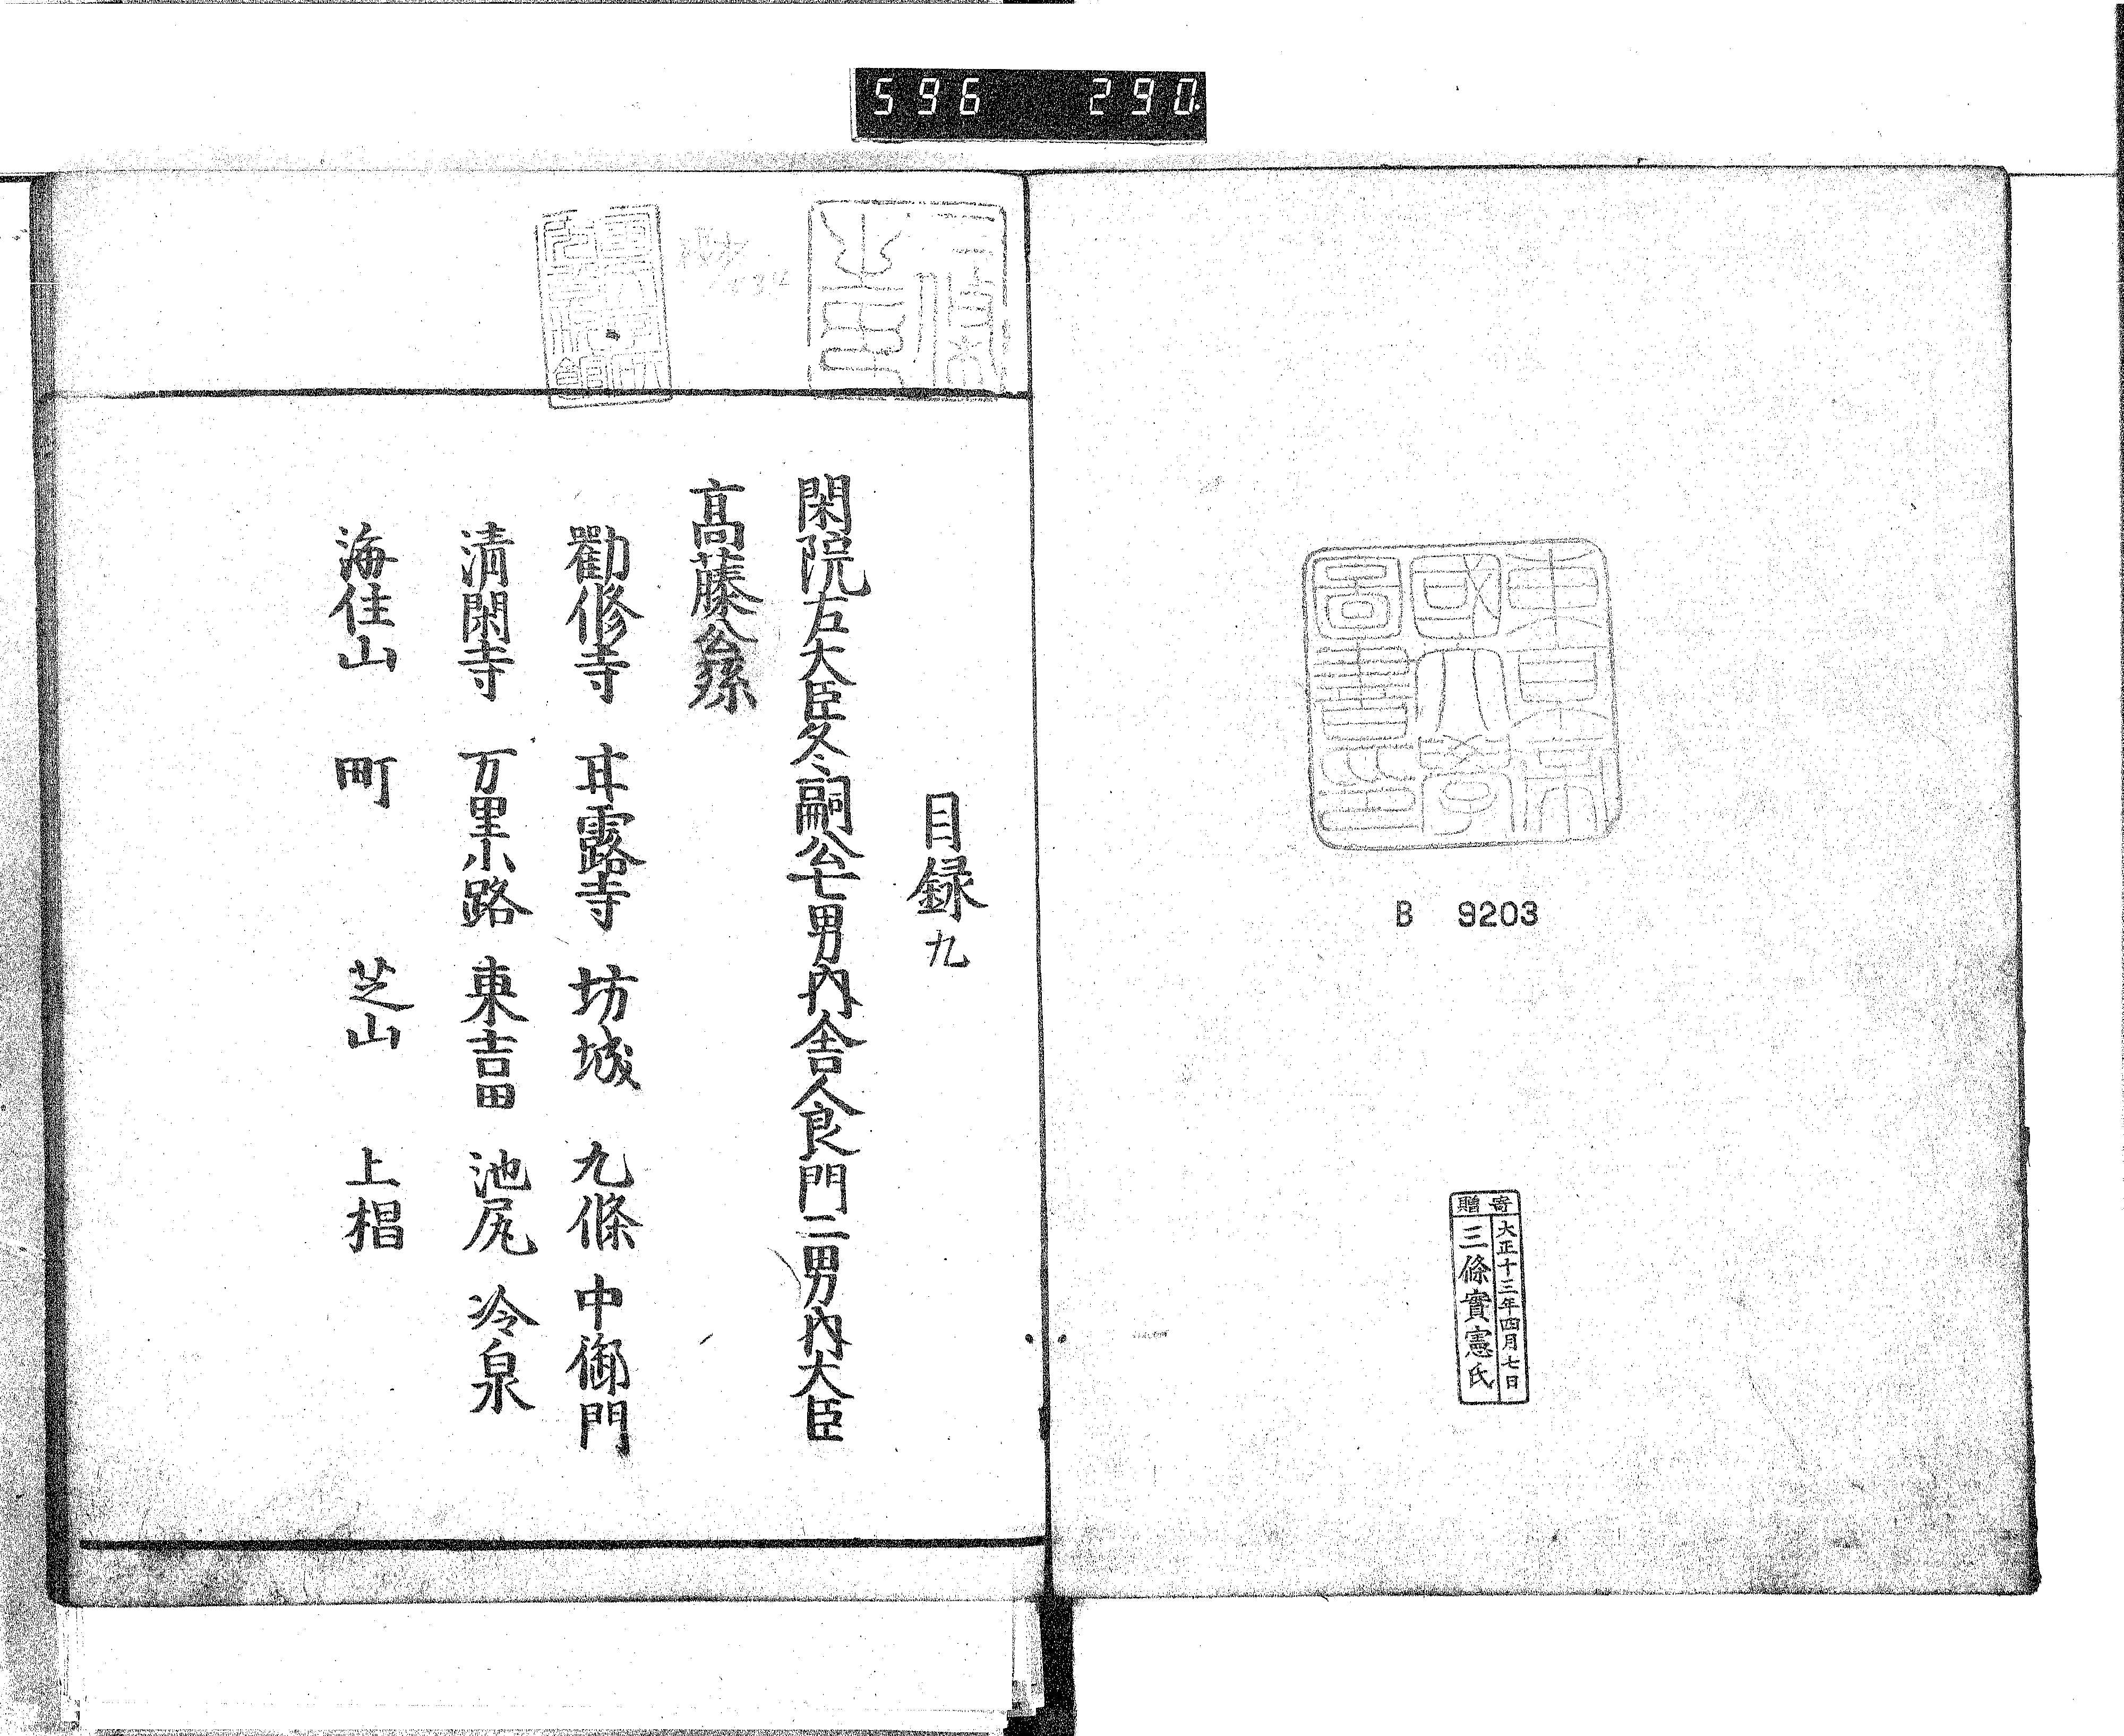 596 290
東京帝
國大學
圖書印
B 9203
寄贈
大正十三年四月七日
三條實憲氏
目録九
閑院左大臣冬嗣公七男內舍人良門二男內大臣
高藤公孫
勸修寺 甘露寺 坊城 九條 中御門
清閑寺 万里小路 東吉田 池尻 冷泉
海住山 町 芝山 上椙